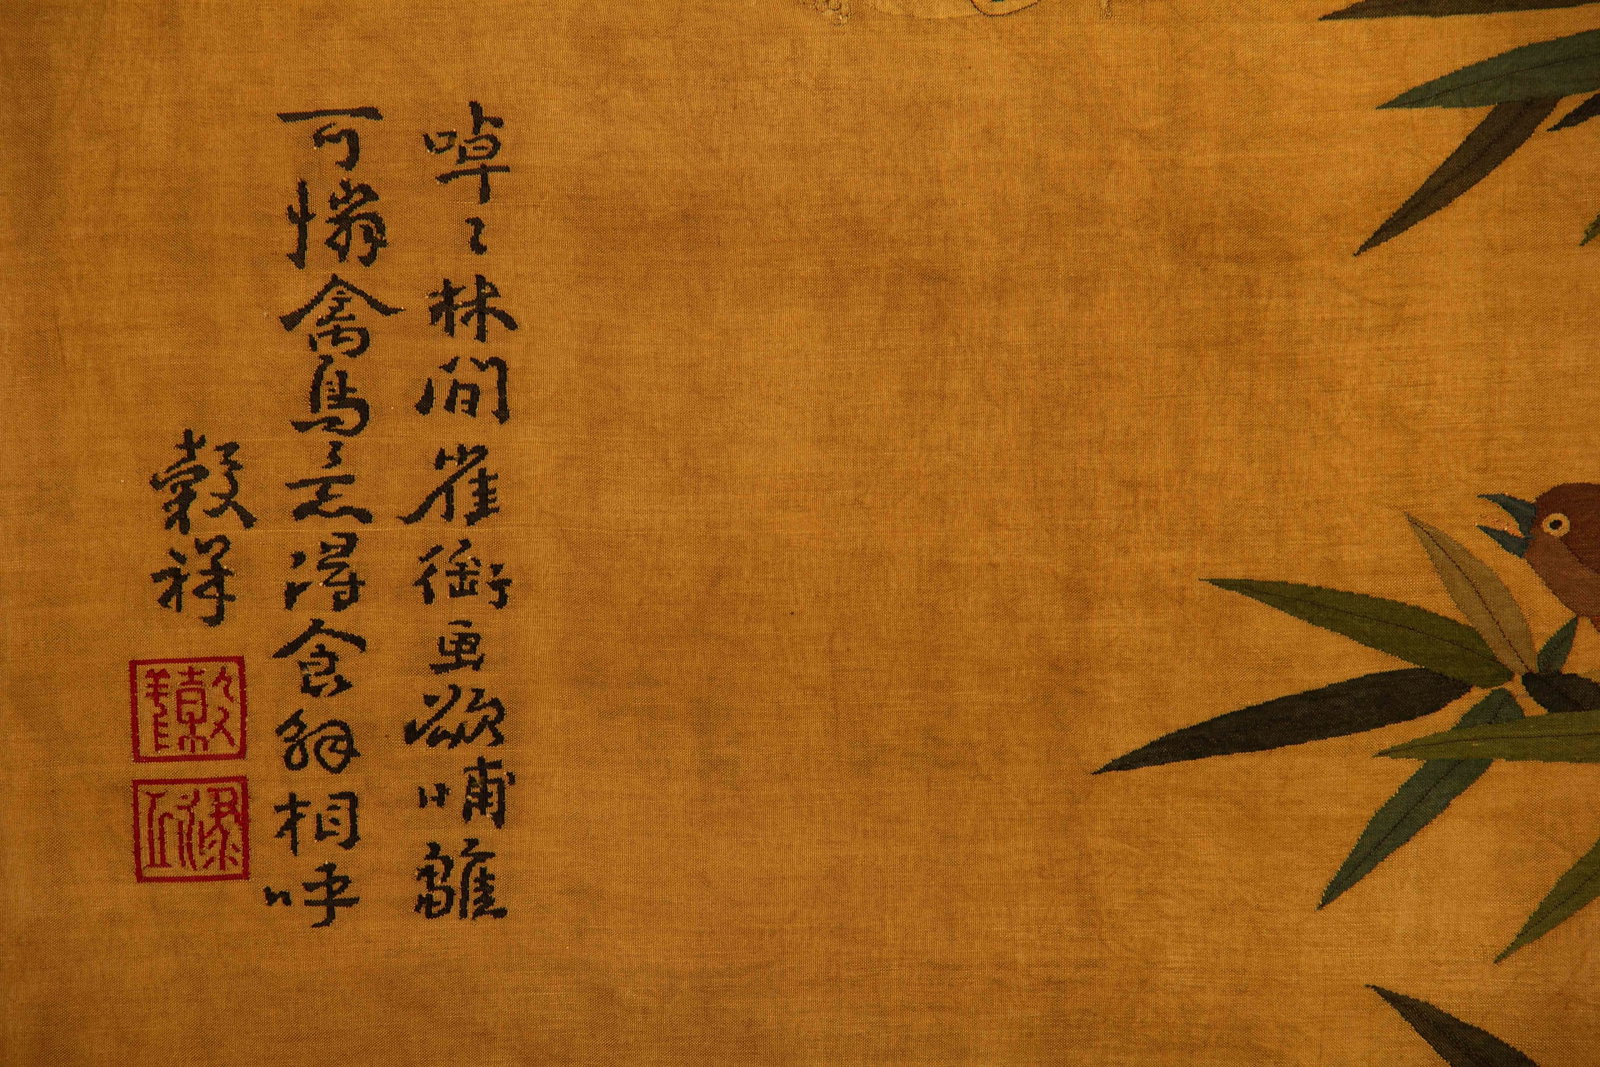 啅〻林間雀銜虫欲哺雛
可憐禽鳥意得食解相呼
穀祥